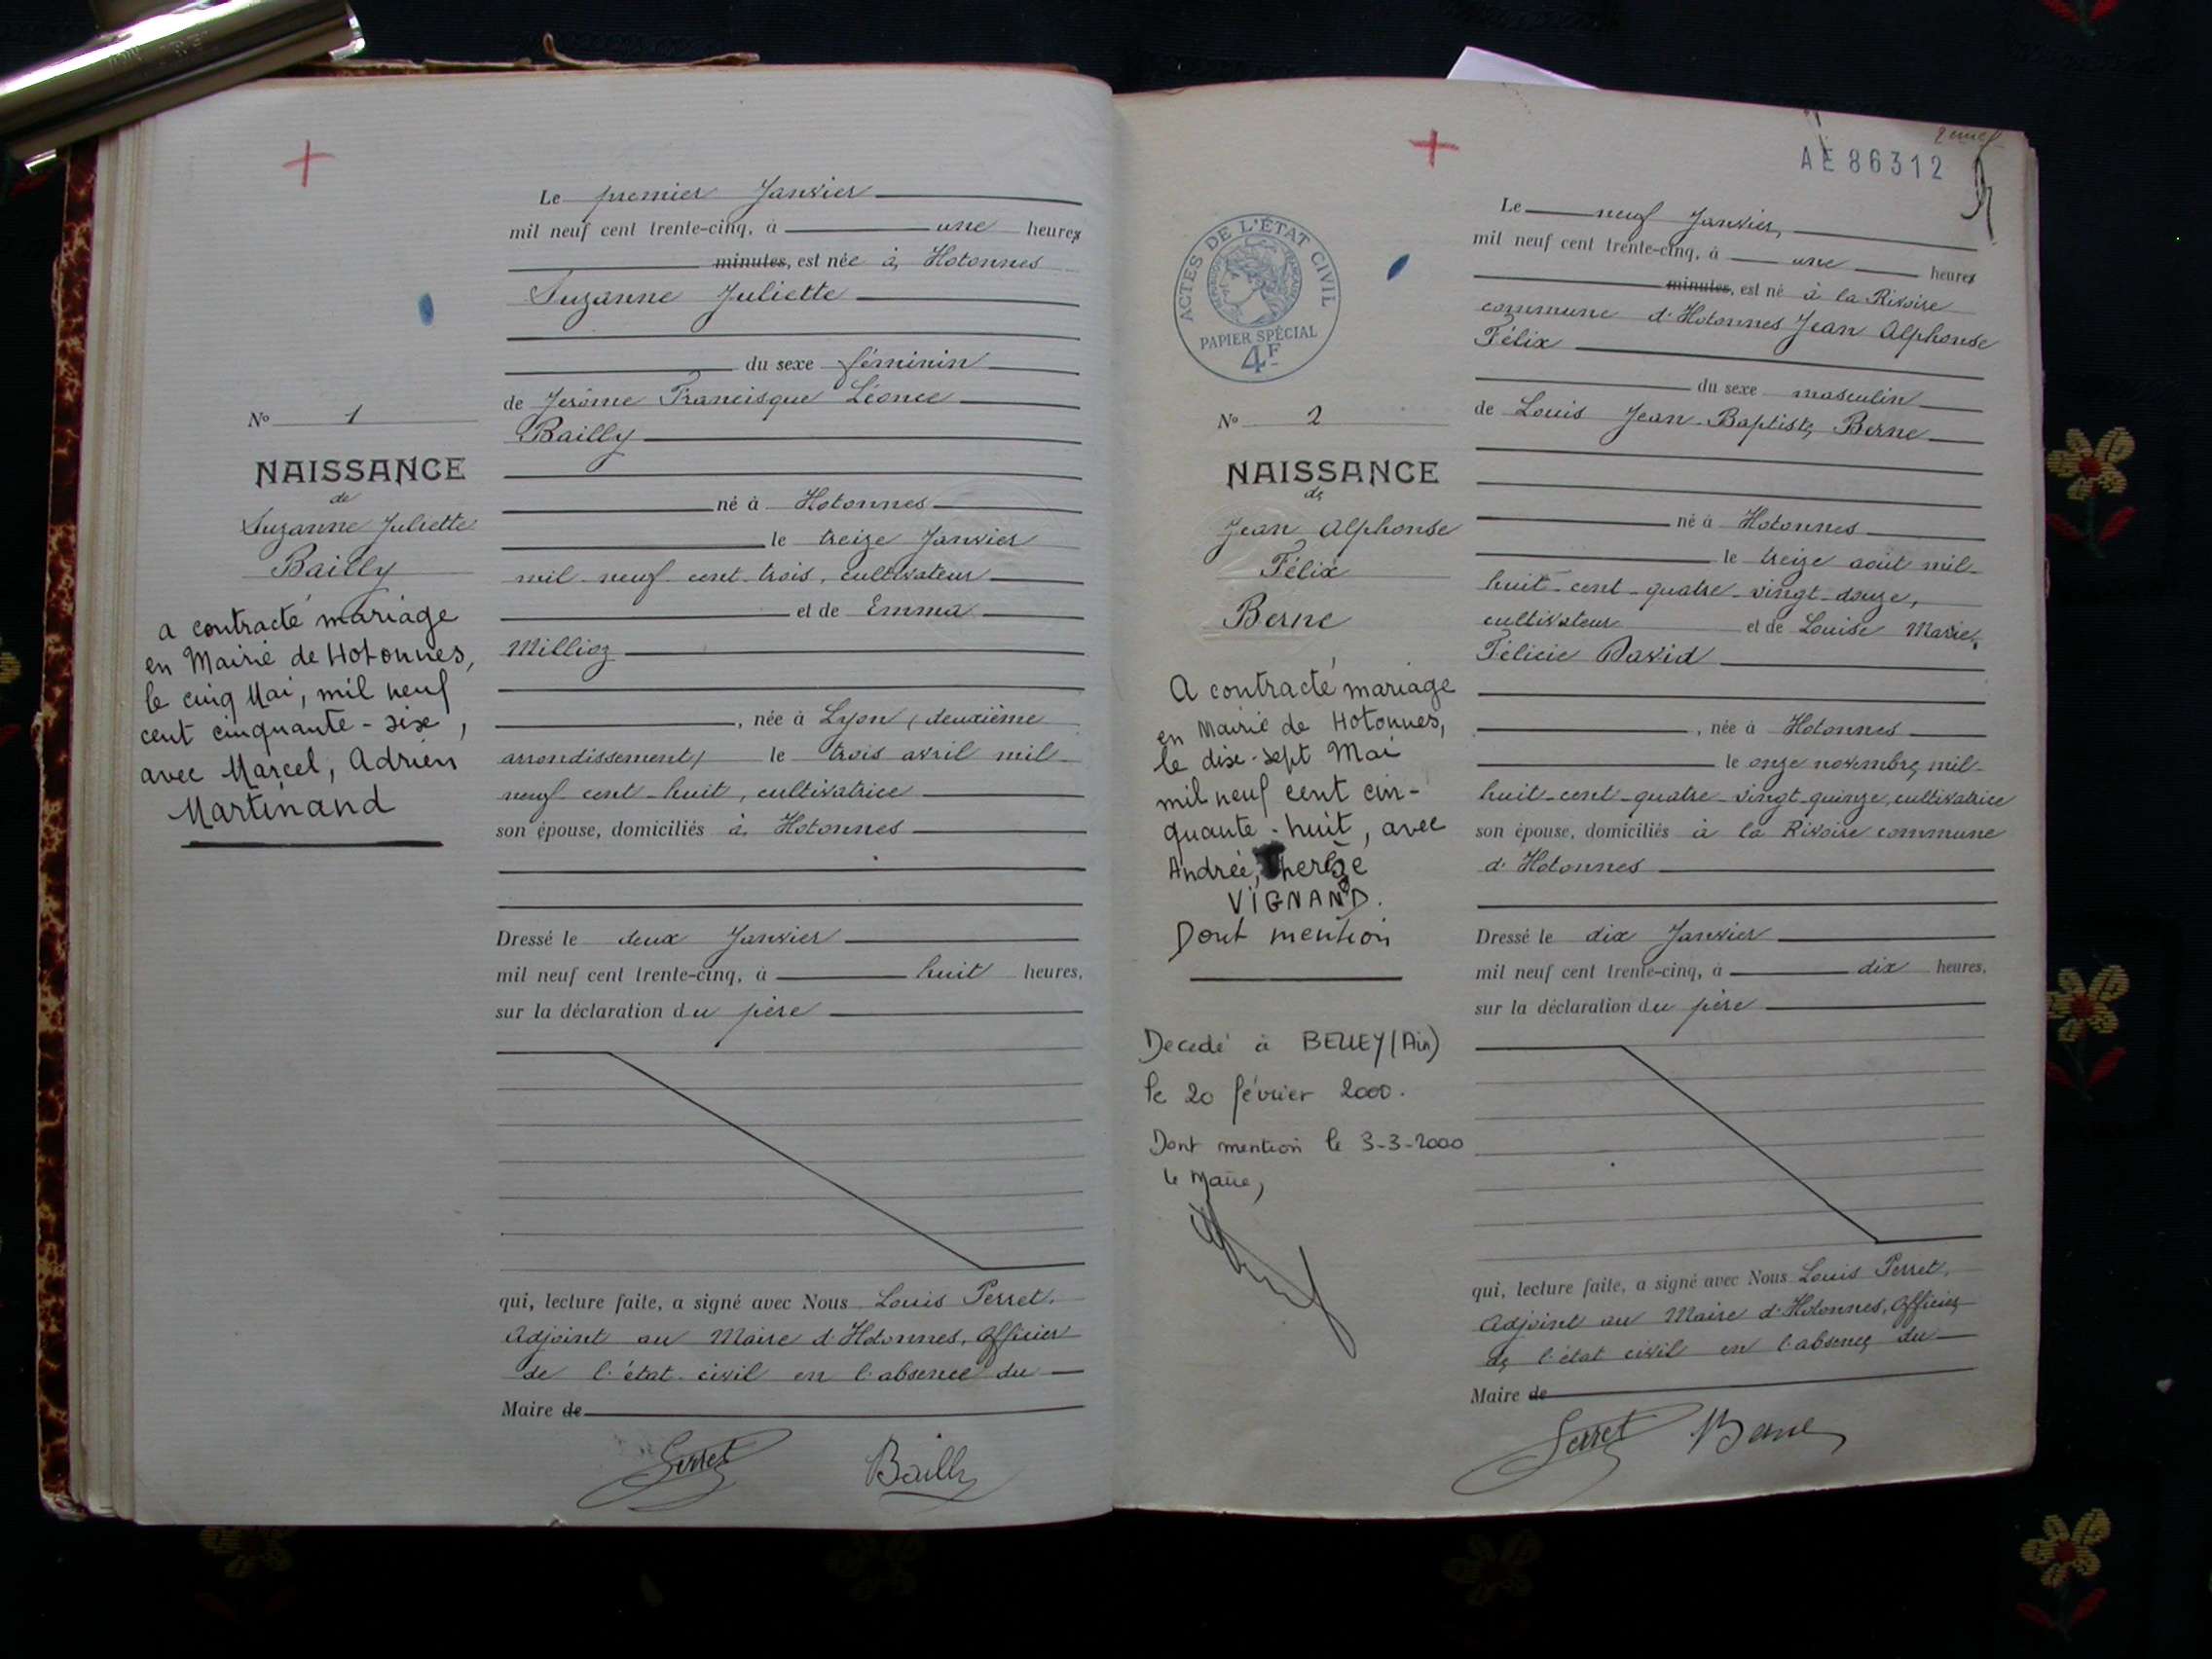 Le premier Janvier
mil neuf cent trente-cinq, à une heures
minutes, est née à Hotonnes
Suzanne Juliette
du sexe féminin
de Jérôme Francisque Léonce
Bailly
né à Hotonnes
le treize Janvier
mil neuf cent trois, cultivateur
et de Emma
Millioz
, née à Lyon (deuxième
arrondissement) le trois avril mil
neuf cent huit, cultivatrice
son épouse, domiciliés à Hotonnes
Dressé le deux Janvier
mil neuf cent trente-cinq, à huit heures,
sur la déclaration du père
qui, lecture faite, a signé avec Nous Louis Perret,
Adjoint au Maire d'Hotonnes, Officier
de l'état civil en l'absence du
Maire de
Perret Bailly
No 1
NAISSANCE
de
Suzanne Juliette
Bailly
a contracté mariage
en Mairie de Hotonnes,
le cinq Mai, mil neuf
cent cinquante-six,
avec Marcel, Adrien
Martinand
AE 86312
Le neuf Janvier,
mil neuf cent trente-cinq, à une heures
minutes, est né à la Rivoire
commune d'Hotonnes Jean Alphonse
Félix
du sexe masculin
de Louis Jean-Baptiste Berne
né à Hotonnes
le treize août mil-
huit-cent-quatre-vingt-douze,
cultivateur et de Louise Marie,
Félicie David
, née à Hotonnes
le onze novembre mil-
huit-cent-quatre-vingt-quinze, cultivatrice
son épouse, domiciliés à la Rivoire commune
d'Hotonnes
Dressé le dix Janvier
mil neuf cent trente-cinq, à dix heures,
sur la déclaration du père
qui, lecture faite, a signé avec Nous Louis Perret,
Adjoint au Maire d'Hotonnes, Officier
de l'état civil en l'absence du
Maire de
Perret Berne
ACTES DE L'ÉTAT CIVIL
RÉPUBLIQUE FRANÇAISE
PAPIER SPÉCIAL
4F
No 2
NAISSANCE
de
Jean Alphonse
Félix
Berne
A contracté mariage
en Mairie de Hotonnes,
le dix-sept Mai
mil neuf cent cin-
quante-huit, avec
Andrée,
VIGNAND.
Dont mention
Décédé à BELLEY (Ain)
le 20 février 2000.
Dont mention le 3-3-2000
le Maire,